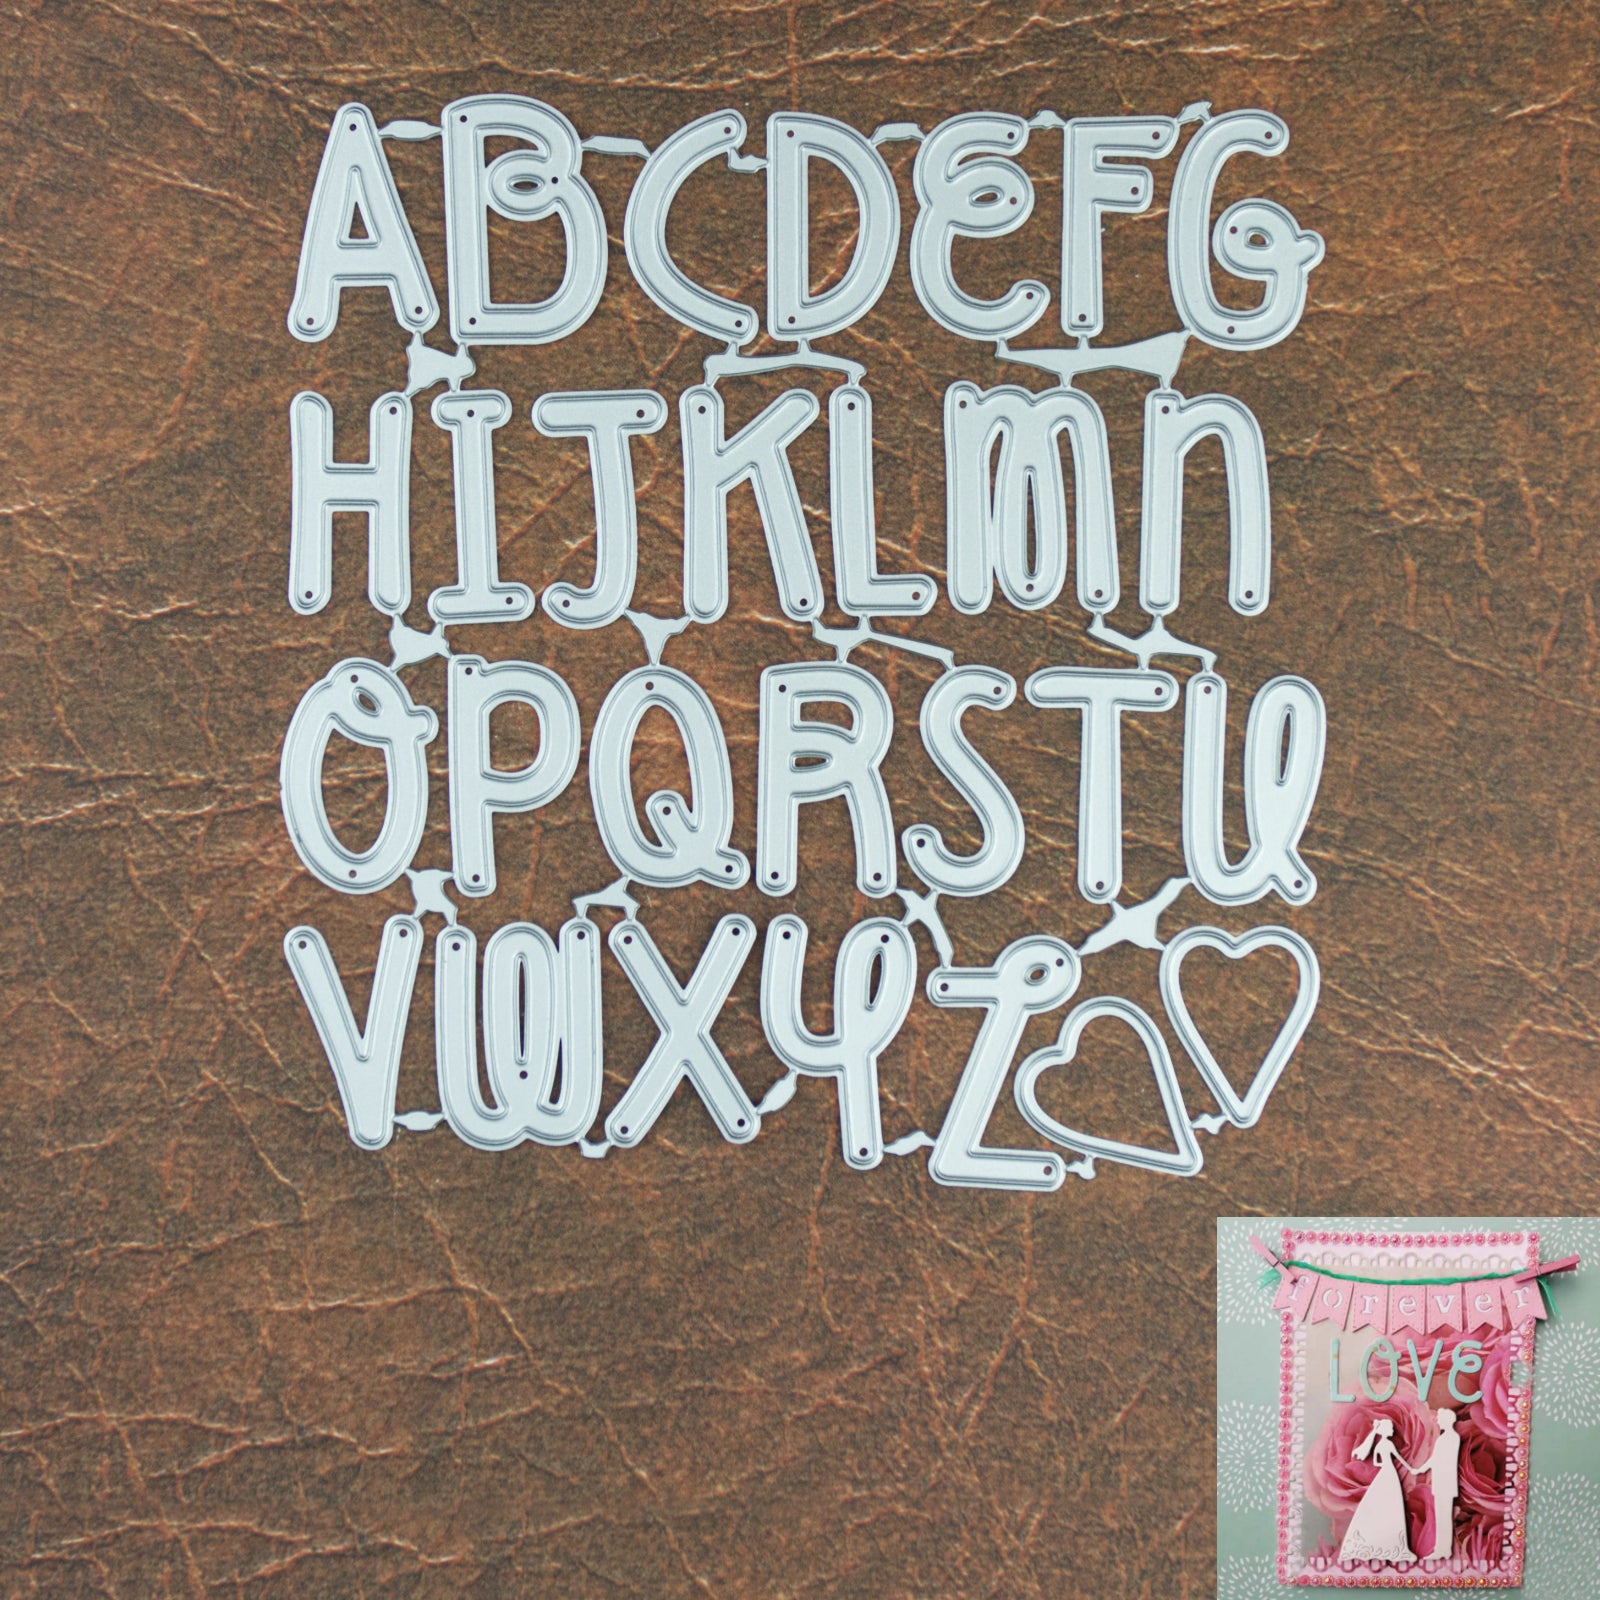 ABCDEFG
HIJKLmn
OPQRSTU
VWXYZ
forever
LOVE